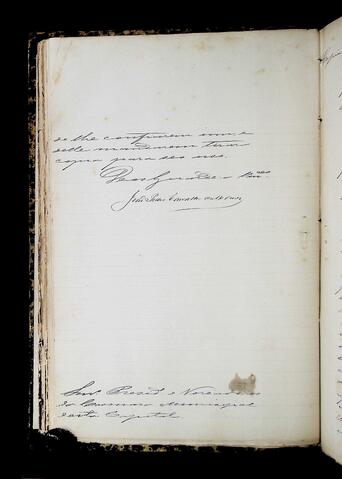 de lhe confiarem um, e
delle mandarem tirar
copia para seo uso.
Deos Guarde a
João
Snrs Presid e Vereadores
da Camara Municipal
desta Capital.